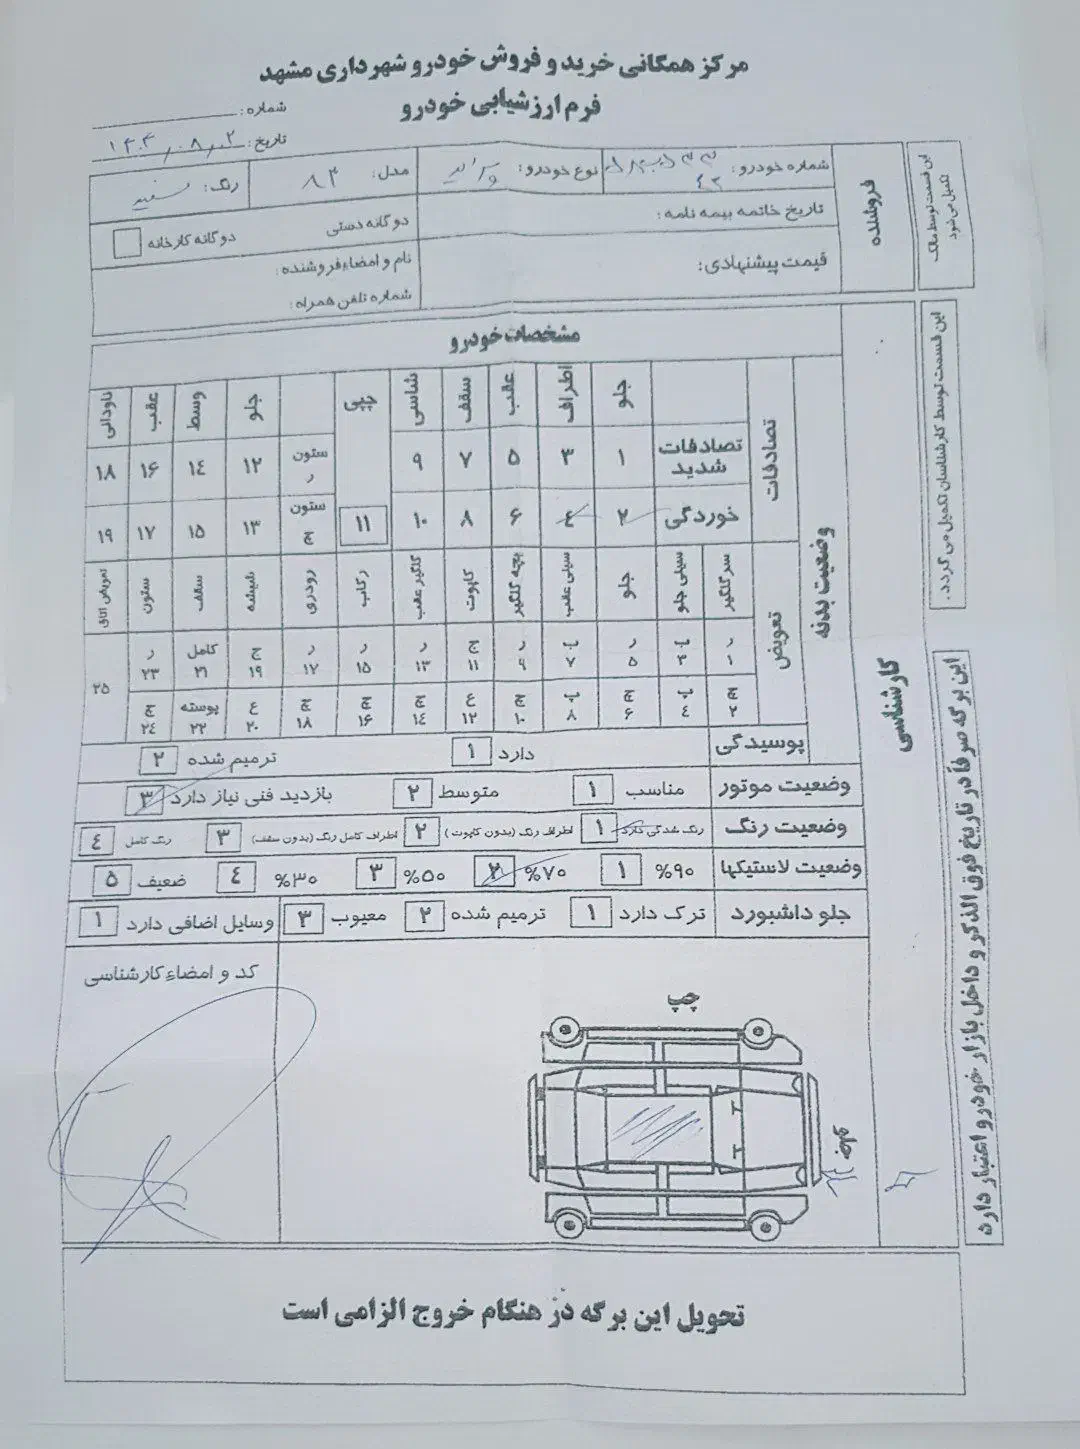 مرکز همگانی خرید و فروش خودرو شهرداری مشهد
فرم ارزشیابی خودرو
شماره:
تاریخ: ۱۴۰۴/۰۸/۰۲
این قسمت توسط مالک تکمیل می شود
فروشنده
شماره خودرو:
نوع خودرو: پراید
مدل: ۸۳
رنگ: سفید
تاریخ خاتمه بیمه نامه:
دوگانه دستی
دوگانه کارخانه
قیمت پیشنهادی:
نام و امضاء فروشنده:
شماره تلفن همراه:
این قسمت توسط کارشناسان تکمیل می گردد.
کارشناسی
مشخصات خودرو
وضعیت بدنه
تصادفات
جلو اطراف عقب سقف شاسی پپی جلو وسط عقب ناودانی
تصادفات شدید ۱ ۳ ۵ ۷ ۹ ستون ر ۱۲ ۱۴ ۱۶ ۱۸
خوردگی ۲ ۴ ۶ ۸ ۱۰ ۱۱ ستون چ ۱۳ ۱۵ ۱۷ ۱۹
تعویض
سر گلگیر سینی جلو جلو سینی عقب بچه گلگیر کاپوت گلگیر عقب رکاب رودری شیشه سقف ستون تعویض اتاق
ر ۱ پ ۳ ر ۵ پ ۷ ر ۹ ج ۱۱ ر ۱۳ ر ۱۵ ر ۱۷ ج ۱۹ کامل ۲۱ ر ۲۳ ۲۵
چ ۲ پ ۴ چ ۶ پ ۸ چ ۱۰ ع ۱۲ چ ۱۴ چ ۱۶ چ ۱۸ ع ۲۰ پوسته ۲۲ چ ۲۴
پوسیدگی دارد ۱ ترمیم شده ۲
وضعیت موتور مناسب ۱ متوسط ۲ بازدید فنی نیاز دارد ۳
وضعیت رنگ رنگ شدگی دارد ۱ اطراف رنگ (بدون کاپوت) ۲ اطراف کامل رنگ (بدون سقف) ۳ رنگ کامل ۴
وضعیت لاستیکها %۹۰ ۱ %۷۰ ۲ %۵۰ ۳ %۳۰ ۴ ضعیف ۵
جلو داشبورد ترک دارد ۱ ترمیم شده ۲ معیوب ۳ وسایل اضافی دارد ۱
کد و امضاء کارشناسی
چپ
این برگه صرفاً در تاریخ فوق الذکر و داخل بازار خودرو اعتبار دارد
تحویل این برگه در هنگام خروج الزامی است